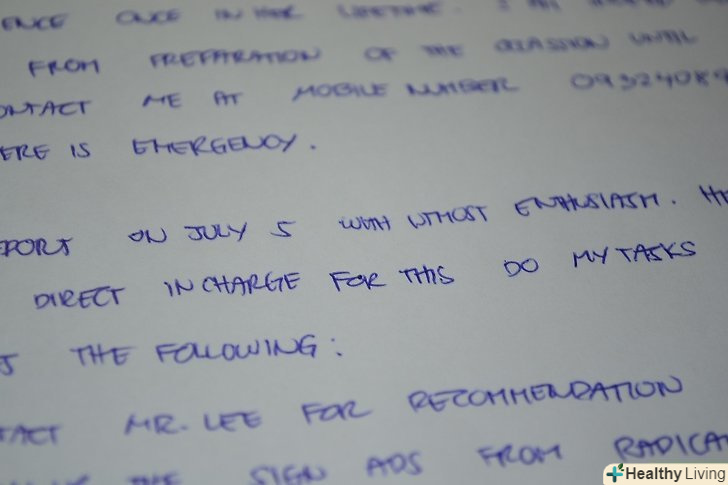 ENCE ONCE IN HER LIFETIME.
FROM PREPARATION OF THE OCASSION UNTIL
ONTACT ME AT MOBILE NUMBER 09324089
ERE IS EMERGENCY.
PORT ON JULY 5 WITH UTMOST ENTHUSIASM.
DIRECT IN CHARGE FOR THIS DO MY TASKS
THE FOLLOWING:
TACT MR. LEE FOR RECOMMENDATION
THE SIGN ADS FROM RADICA
Healthy Living